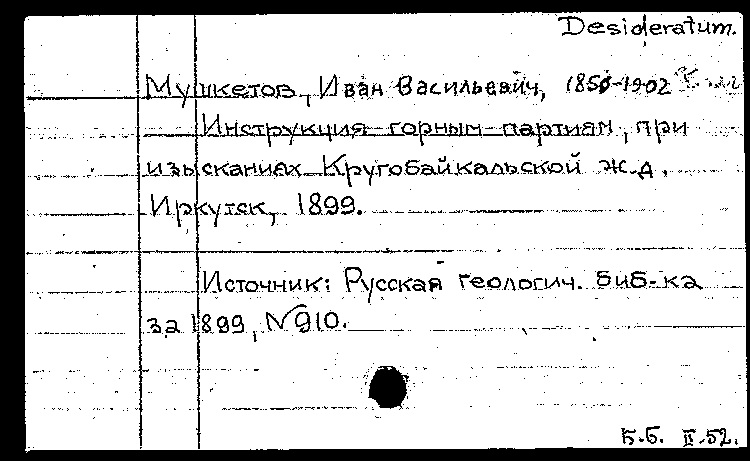 Desideratum.
Мушкетов, Иван Васильевич, 1850-1902
Инструкция горным партиям, при
изысканиях Кругобайкальской ж.д.
Иркутск, 1899.
Источник: Русская геологич. биб-ка
за 1899, N 910.
Б.б. II.52.